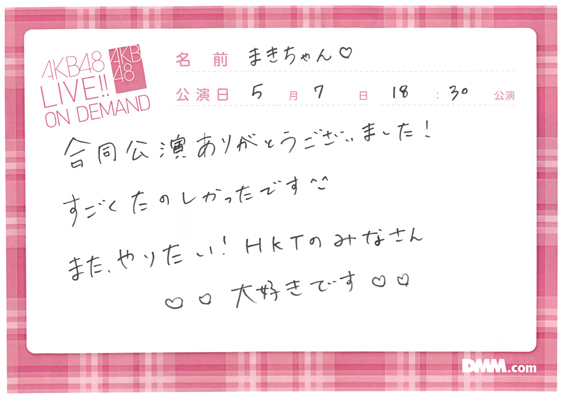 AKB48
LIVE!!
ON DEMAND
AKB
48
名前 まきちゃん♡
公演日 5月7日 18:30 公演
合同公演ありがとうございました!
すごくたのしかったです^^
また、やりたい! HKTのみなさん
♡♡大好きです♡♡
DMM.com